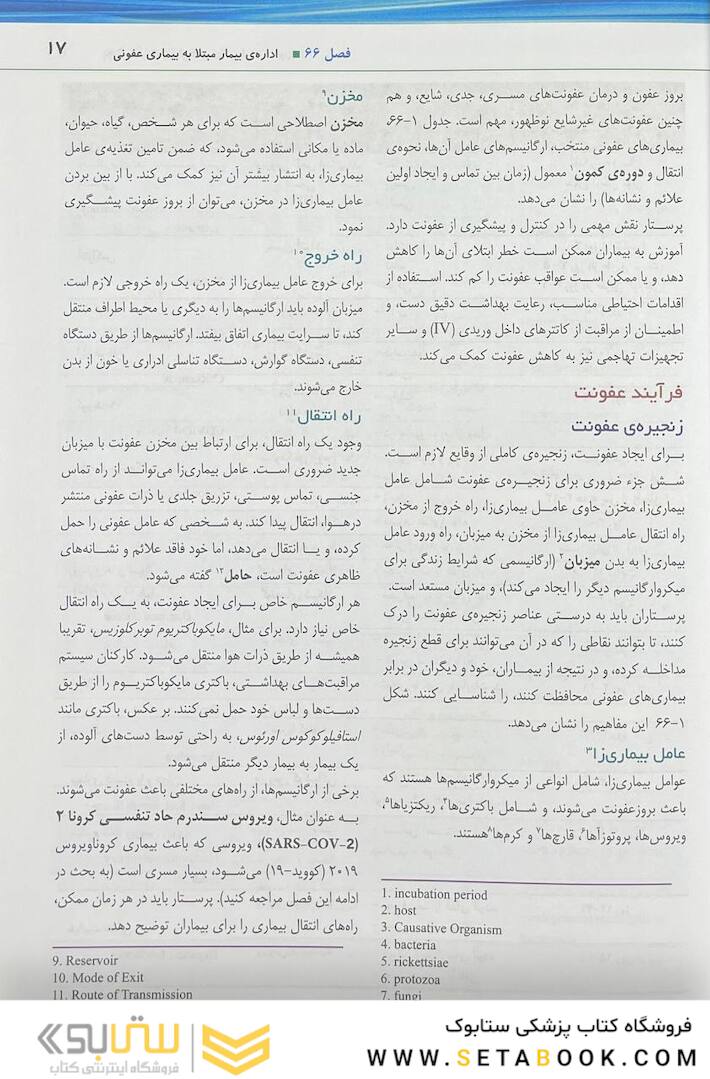 فصل ۶۶ ■ اداره‌ی بیمار مبتلا به بیماری عفونی
۱۷
بروز عفون و درمان عفونت‌های مسری، جدی، شایع، و هم
چنین عفونت‌های غیرشایع نوظهور، مهم است. جدول ۱-۶۶،
بیماری‌های عفونی منتخب، ارگانیسم‌های عامل آن‌ها، نحوه‌ی
انتقال و دوره‌ی کمون۱ معمول (زمان بین تماس و ایجاد اولین
علائم و نشانه‌ها) را نشان می‌دهد.
پرستار نقش مهمی را در کنترل و پیشگیری از عفونت دارد.
آموزش به بیماران ممکن است خطر ابتلای آن‌ها را کاهش
دهد، و یا ممکن است عواقب عفونت را کم کند. استفاده از
اقدامات احتیاطی مناسب، رعایت بهداشت دقیق دست، و
اطمینان از مراقبت از کاتترهای داخل وریدی (IV) و سایر
تجهیزات تهاجمی نیز به کاهش عفونت کمک می‌کند.
فرآیند عفونت
زنجیره‌ی عفونت
برای ایجاد عفونت، زنجیره‌ی کاملی از وقایع لازم است.
شش جزء ضروری برای زنجیره‌ی عفونت شامل عامل
بیماری‌زا، مخزن حاوی عامل بیماری‌زا، راه خروج از مخزن،
راه انتقال عامل بیماری‌زا از مخزن به میزبان، راه ورود عامل
بیماری‌زا به بدن میزبان۲ (ارگانیسمی که شرایط زندگی برای
میکروارگانیسم دیگر را ایجاد می‌کند)، و میزبان مستعد است.
پرستاران باید به درستی عناصر زنجیره‌ی عفونت را درک
کنند، تا بتوانند نقاطی را که در آن می‌توانند برای قطع زنجیره
مداخله کرده، و در نتیجه از بیماران، خود و دیگران در برابر
بیماری‌های عفونی محافظت کنند، را شناسایی کنند. شکل
۱-۶۶ این مفاهیم را نشان می‌دهد.
عامل بیماری‌زا۳
عوامل بیماری‌زا، شامل انواعی از میکروارگانیسم‌ها هستند که
باعث بروزعفونت می‌شوند، و شامل باکتری‌ها۴، ریکتزیاها۵،
ویروس‌ها، پروتوزآها۶، قارچ‌ها۷ و کرم‌ها۸هستند.
1. incubation period
2. host
3. Causative Organism
4. bacteria
5. rickettsiae
6. protozoa
7. fungi
مخزن۹
مخزن اصطلاحی است که برای هر شخص، گیاه، حیوان،
ماده یا مکانی استفاده می‌شود، که ضمن تامین تغذیه‌ی عامل
بیماری‌زا، به انتشار بیشتر آن نیز کمک می‌کند. با از بین بردن
عامل بیماری‌زا در مخزن، می‌توان از بروز عفونت پیشگیری
نمود.
راه خروج۱۰
برای خروج عامل بیماری‌زا از مخزن، یک راه خروجی لازم است.
میزبان آلوده باید ارگانیسم‌ها را به دیگری یا محیط اطراف منتقل
کند، تا سرایت بیماری اتفاق بیفتد. ارگانیسم‌ها از طریق دستگاه
تنفسی، دستگاه گوارش، دستگاه تناسلی ادراری یا خون از بدن
خارج می‌شوند.
راه انتقال۱۱
وجود یک راه انتقال، برای ارتباط بین مخزن عفونت با میزبان
جدید ضروری است. عامل بیماری‌زا می‌تواند از راه تماس
جنسی، تماس پوستی، تزریق جلدی یا ذرات عفونی منتشر
درهوا، انتقال پیدا کند. به شخصی که عامل عفونی را حمل
کرده، و یا انتقال می‌دهد، اما خود فاقد علائم و نشانه‌های
ظاهری عفونت است، حامل۱۲ گفته می‌شود.
هر ارگانیسم خاص برای ایجاد عفونت، به یک راه انتقال
خاص نیاز دارد. برای مثال، مایکوباکتریوم توبرکلوزیس، تقریبا
همیشه از طریق ذرات هوا منتقل می‌شود. کارکنان سیستم
مراقبت‌های بهداشتی، باکتری مایکوباکتریوم را از طریق
دست‌ها و لباس خود حمل نمی‌کنند. بر عکس، باکتری مانند
استافیلوکوکوس اورئوس، به راحتی توسط دست‌های آلوده، از
یک بیمار به بیمار دیگر منتقل می‌شود.
برخی از ارگانیسم‌ها، از راه‌های مختلفی باعث عفونت می‌شوند.
به عنوان مثال، ویروس سندرم حاد تنفسی کرونا ۲
(SARS-COV-2)، ویروسی که باعث بیماری کروناویروس
۲۰۱۹ (کووید-۱۹) می‌شود، بسیار مسری است (به بحث در
ادامه این فصل مراجعه کنید). پرستار باید در هر زمان ممکن،
راه‌های انتقال بیماری را برای بیماران توضیح دهد.
9. Reservoir
10. Mode of Exit
11. Route of Transmission
فروشگاه کتاب پزشکی ستابوک
WWW.SETABOOK.COM
ستابوک
فروشگاه اینترنتی کتاب